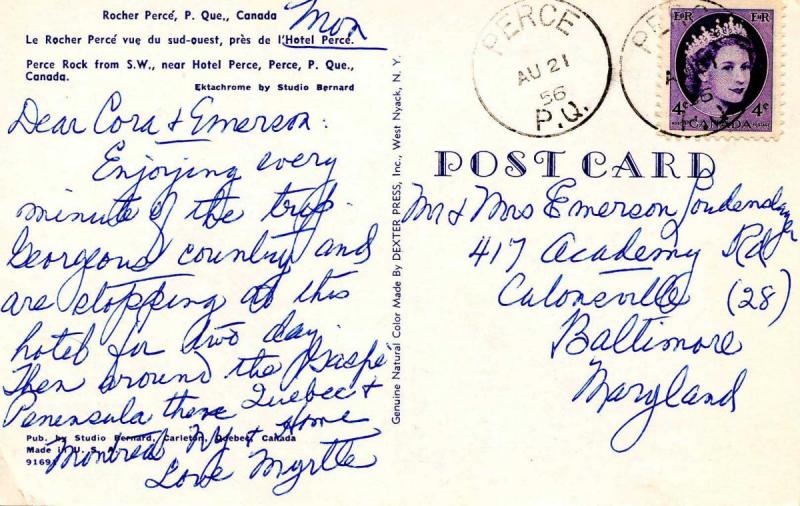 Rocher Percé, P. Que., Canada
Mon
Le Rocher Percé vue du sud-ouest, près de l'Hotel Percé.
Perce Rock from S.W., near Hotel Perce, Perce, P. Que., Canada.
Ektachrome by Studio Bernard
Dear Cora & Emerson:
Enjoying every
minute of the trip.
Gorgeous country and
are stopping at this
hotel for two day.
Then around the Gaspé
Penensula thene Quebec &
Montreal NY & Home
Love Myrtle
Pub. by Studio Bernard, Carleton, Quebec, Canada
Made in U. S. A.
9169
Genuine Natural Color Made By DEXTER PRESS, Inc., West Nyack, N. Y.
PERCE
AU 21
56
P.Q.
PERCE
EⅡR EⅡR
4¢ 4¢
CANADA
POST CARD
Mr & Mrs Emerson Loudenslager
417 Academy Rd
Catonsville (28)
Baltimore
Maryland